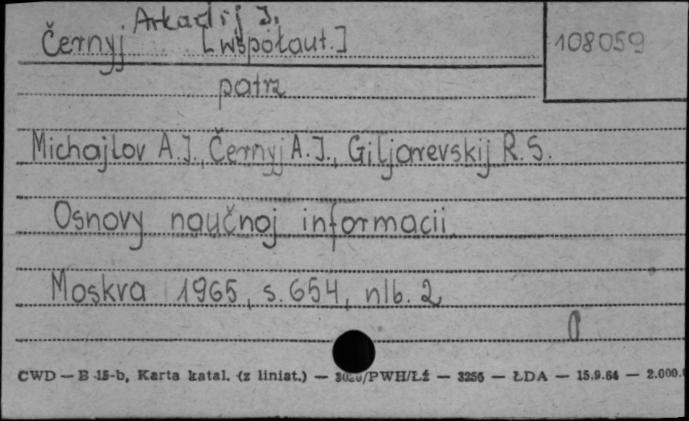 Arkadij I.
Černyj [współaut.]
108059
patrz
Michajlov A.I., Černyj A.I., Giljarevskij R.S.
Osnovy naučnoj informacii.
Moskva 1965, s. 654, nlb. 2
CWD — B 15-b, Karta katal. (z liniat.) — /PWH/Łź — 3256 — ŁDA — 15.9.64 — 2.000.